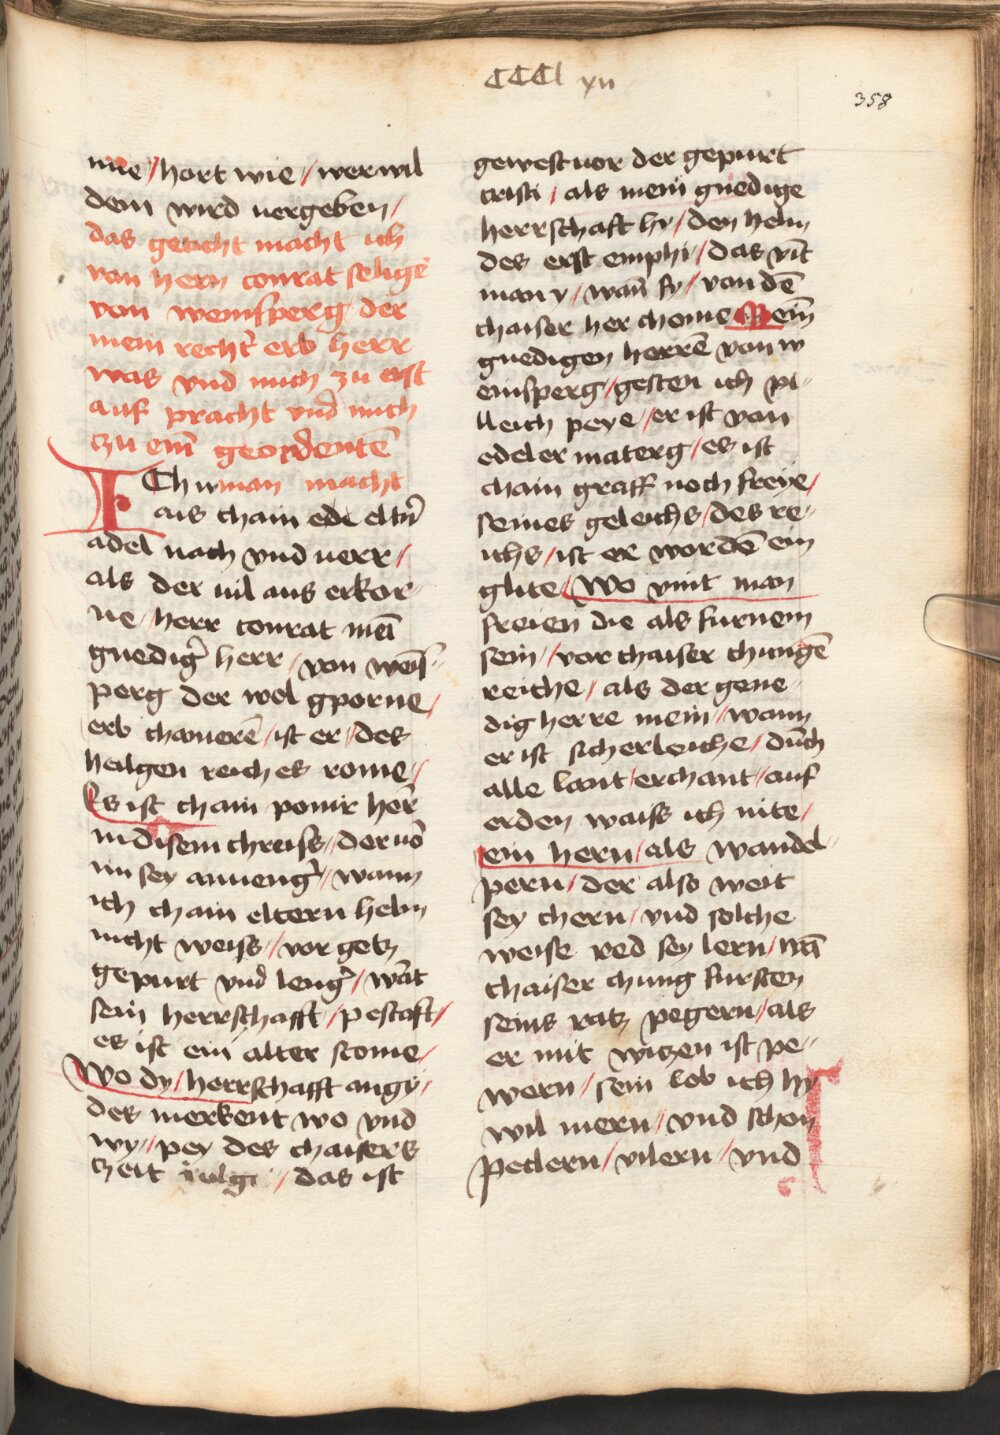 CCCl xii
358
nne / hort wie / wer wil
dem wird uergeben /
das geticht macht ich
von hern conrat seligē
von weinsperg der
mein recht̕ erb herr
was vnd mich zu erst
auf pracht vnd mich
czu eim̄ geordentē
Ich wman macht
aus chain edel eltn̄
adel nach vnd uerr /
als der uil aus erkor
ne / herr conrat meī
gnedig̕ herr / von weīs
perg der wol gporne /
erb chamerē / ist er / des
heilgen reiches rome /
Es ist chain ponir her̄
in disem chreiss / der uō
im sey anueng̕ / wann
ich chain eltern helm
nicht weiss / vor getz
gepurt vnd leng̕ / wāt
sein herrschafft / pestaft /
es ist ein alter stome /
Wo dy / herrschafft angi /
des merkent wo vnd
wy / pey des chaisers
zeit / das ist
gewest uor der gepurt
cristi / als mein gnedige
herrschaft hy / den helm
des erst emphi / das vīt
man v / wan̄ sy / von dē
chaiser her chome Meim̄
gnedigen herrē von w
einsperg / gesten ich pi
lleich peye / er ist von
edeler materg / es ist
chain graff noch freye /
seines geleichs / des re
ichs / ist er wordē ein
glite / Wo vint man
freien die als furnem
sein / vor chaiser chungē
reiche / als der gene
dig herre mein / wann
er ist sicherleiche / durch
alle lant erchant / auf
erden waiss ich nite /
ein hern / als wandel
pern / der also weit
sey chern / vnd solche
weise red sey lern / wā
chaiser chung fursten
seins ratz pegern / als
er mit witzen ist pe
wern / sein lob ich hy
wil mern / vnd schon
pedern / vilern / vnd